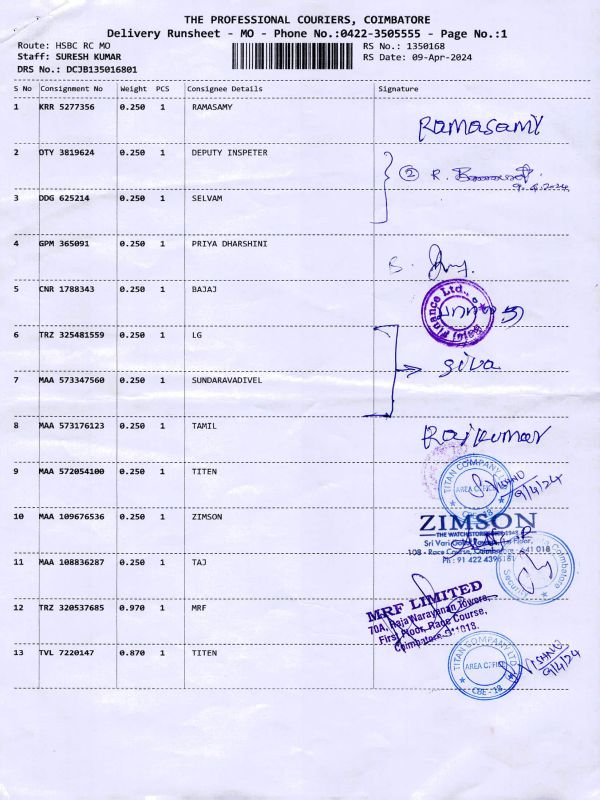 THE PROFESSIONAL COURIERS, COIMBATORE
Delivery Runsheet - MO - Phone No.:0422-3505555 - Page No.:1
Route: HSBC RC MO RS No.: 1350168
Staff: SURESH KUMAR RS Date: 09-Apr-2024
DRS No.: DCJB135016801
S No Consignment No Weight PCS Consignee Details Signature
1 KRR 5277356 0.250 1 RAMASAMY
RAMASAMY
2 OTY 3819624 0.250 1 DEPUTY INSPETER
② R.
9.4.2024
3 DDG 625214 0.250 1 SELVAM
4 GPM 365091 0.250 1 PRIYA DHARSHINI
S.
5 CNR 1788343 0.250 1 BAJAJ
Bajaj Finance Ltd.,
6 TRZ 325481559 0.250 1 LG
siva
7 MAA 573347560 0.250 1 SUNDARAVADIVEL
8 MAA 573176123 0.250 1 TAMIL
Rajkumar
9 MAA 572054100 0.250 1 TITEN
TITAN COMPANY LTD.
AREA OFFICE
CBE - 18
VISHNU
9/4/24
10 MAA 109676536 0.250 1 ZIMSON
ZIMSON
THE WATCHSTORE
Sri Vari Floor,
108 - Race Course, Coimbatore - 641 018
Ph : 91 422
11 MAA 108836287 0.250 1 TAJ
Security Coimbatore
12 TRZ 320537685 0.970 1 MRF
MRF LIMITED
70A, Raja Narayanan Towers,
First Floor, Race Course,
Coimbatore
13 TVL 7220147 0.870 1 TITEN
TITAN COMPANY LTD.
AREA OFFICE
CBE - 18
VISHNU
9/4/24